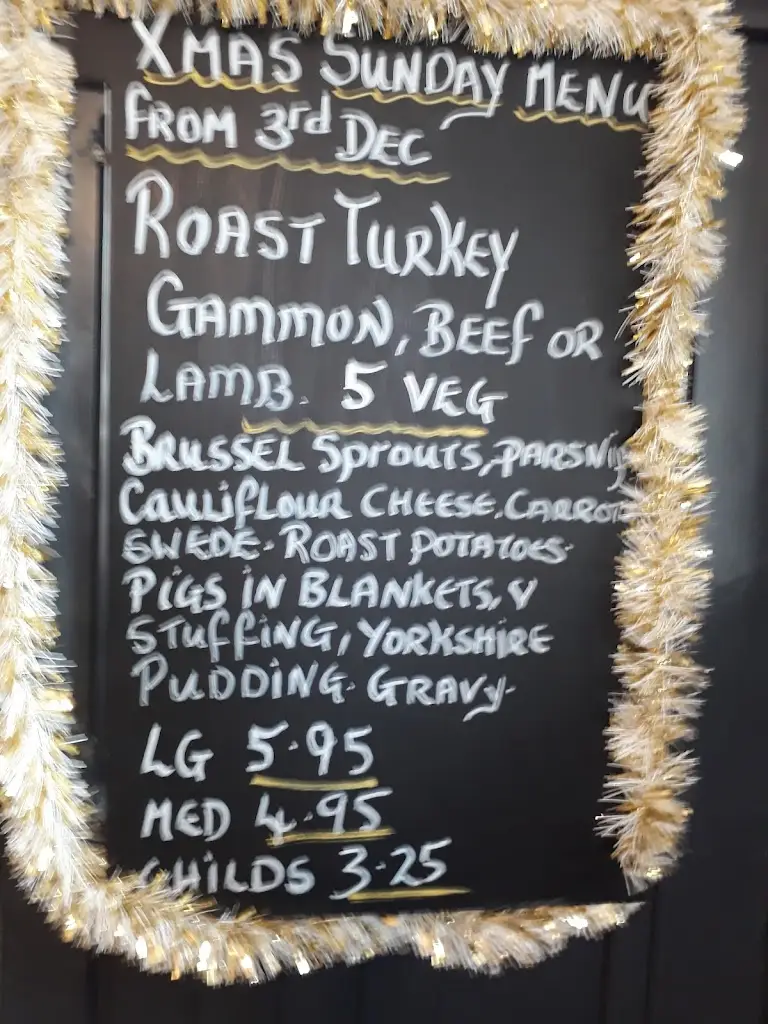 XMAS SUNDAY MENU
FROM 3rd DEC
ROAST TURKEY
GAMMON, BEEF OR
LAMB. 5 VEG
BRUSSEL SPROUTS,
CAULIFLOUR CHEESE. CARROT
SWEDE. ROAST POTATOES
PIGS IN BLANKETS, Y
STUFFING, YORKSHIRE
PUDDING. GRAVY.
LG 5.95
MED 4.95
CHILDS 3.25